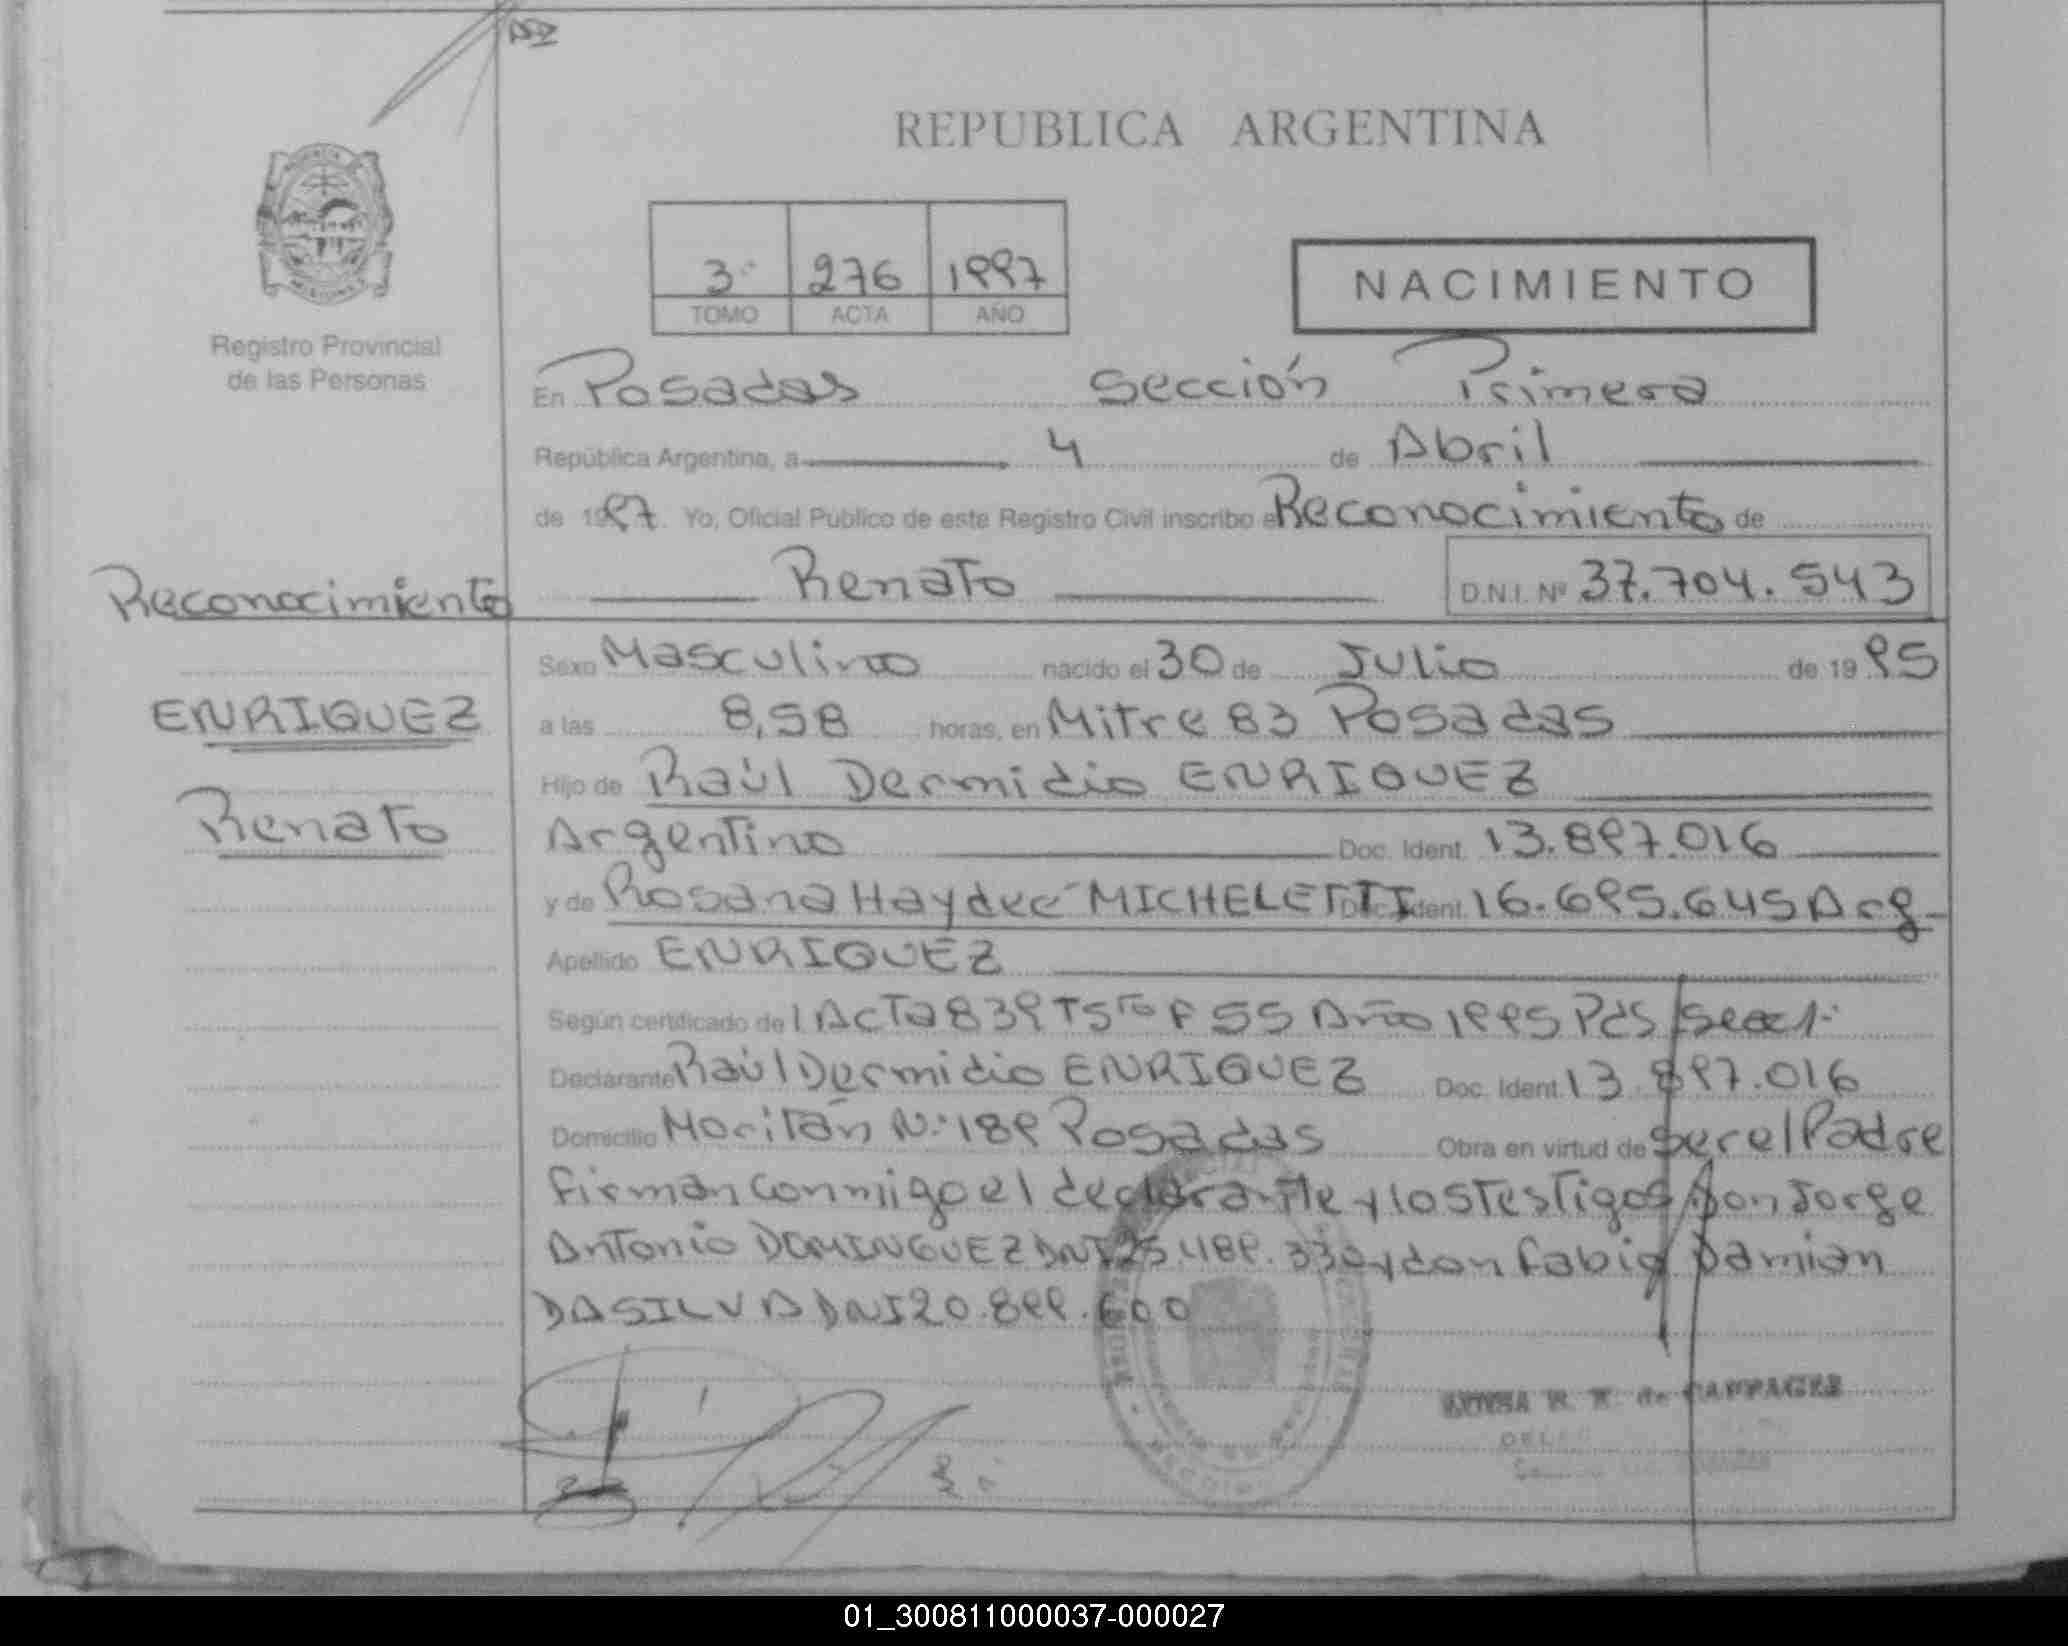 REPUBLICA ARGENTINA
3º 276 1997
TOMO ACTA AÑO
NACIMIENTO
Registro Provincial
de las Personas
En Posadas Sección Primera
República Argentina, a 4 de Abril
de 1997. Yo, Oficial Público de este Registro Civil inscribo el Reconocimiento de
Reconocimiento
Renato D.N.I. Nº 37.704.543
Sexo Masculino nacido el 30 de Julio de 1995
ENRIQUEZ
a las 8,58 horas, en Mitre 83 Posadas
Hijo de Raúl Dermidio ENRIQUEZ
Renato
Argentino Doc. Ident. 13.897.016
y de Rosana Haydeé MICHELETTI Doc. Ident. 16.695.645 Arg
Apellido ENRIQUEZ
Según certificado de 1 Acta 839 T 5to F 55 Año 1995 Pds Secc 1º
Declarante Raúl Dermidio ENRIQUEZ Doc. Ident. 13.897.016
Domicilio Moritán N:189 Posadas Obra en virtud de ser el Padre
firman conmigo el declarante y los testigos don Jorge
Antonio DOMINGUEZ DNI 25.489.330 y don Fabio Damian
DASILVA DNI 20.899.600
de CAPPAGLI
01_300811000037-000027